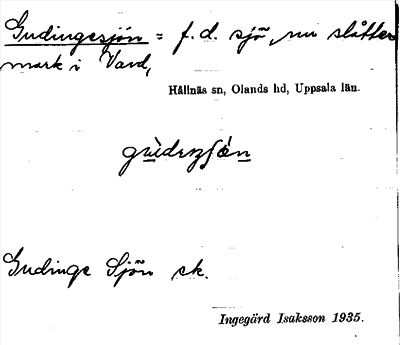 Gudingesjön = f. d. sjö, nu slåtter
mark i Vavd,
Hållnäs sn, Olands hd, Uppsala län.
Gudinge Sjön ek.
Ingegärd Isaksson 1935.